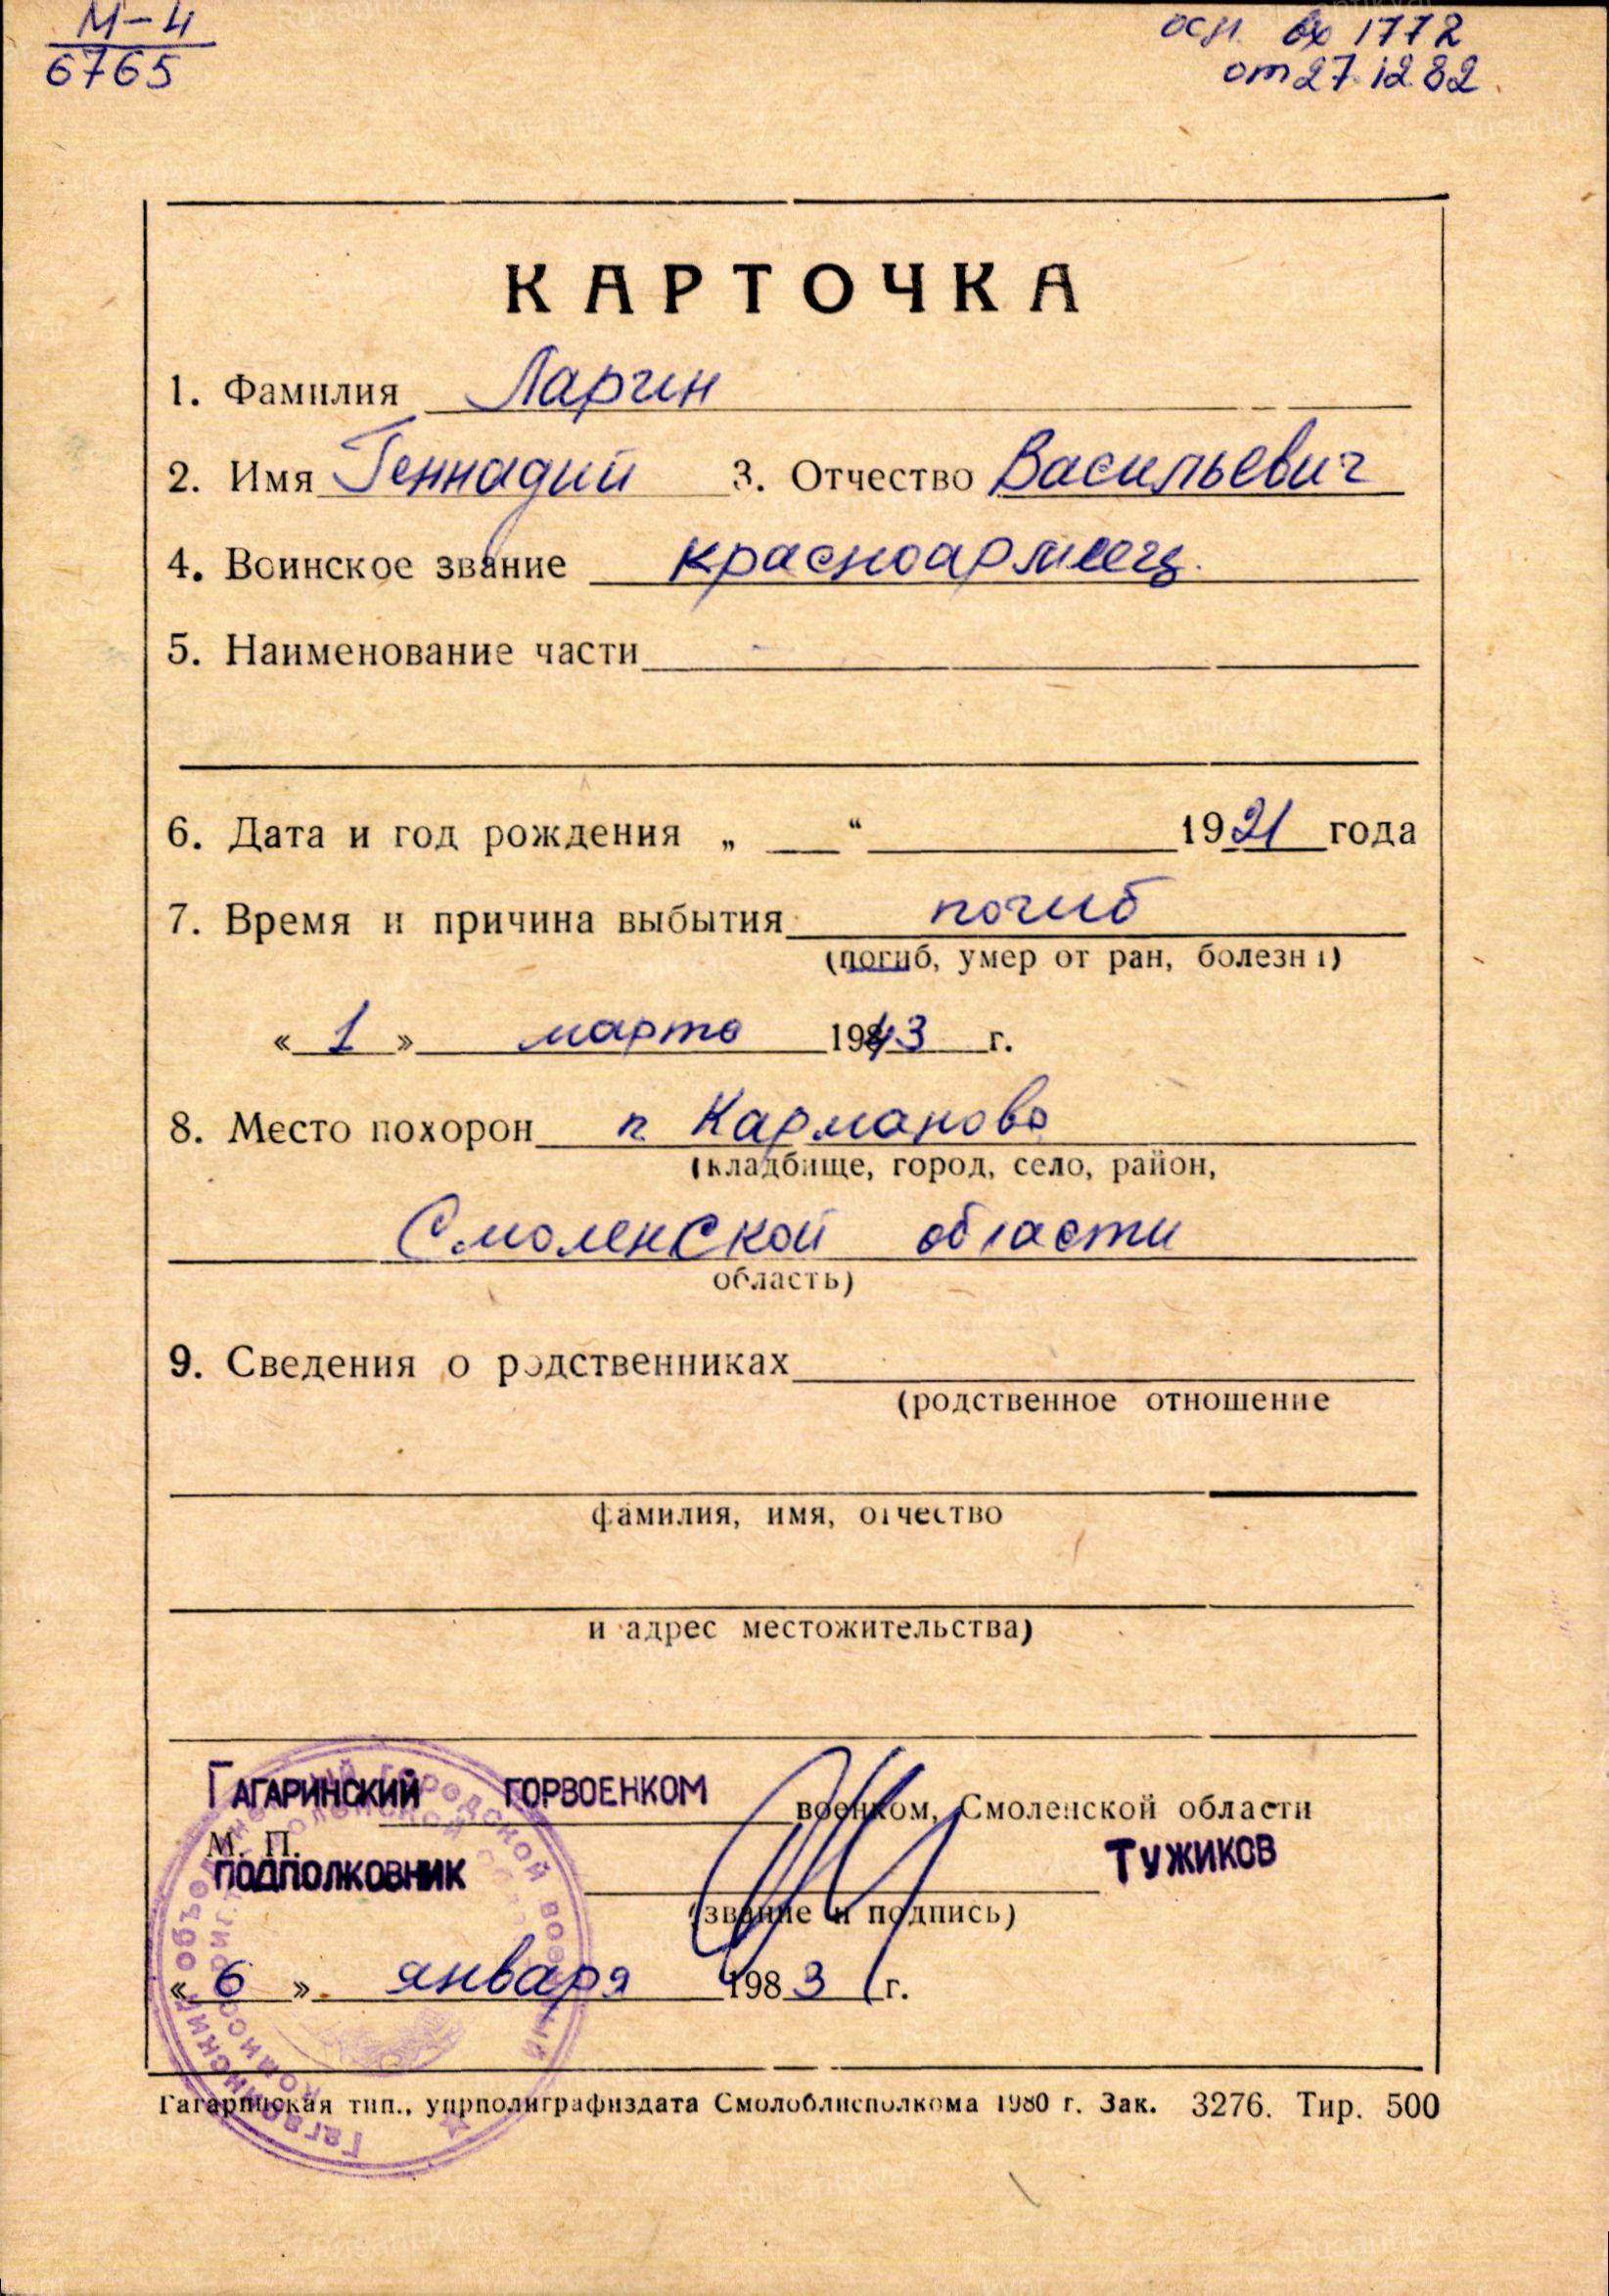 М-4
6765
осн. вх 1772
от 27.12.82
КАРТОЧКА
1. Фамилия Ларин
2. Имя Геннадий 3. Отчество Васильевич
4. Воинское звание красноармеец.
5. Наименование части
6. Дата и год рождения „ “ 1921 года
7. Время и причина выбытия погиб
(погиб, умер от ран, болезни)
« 1 » марта 1943 г.
8. Место похорон п Карманово
(кладбище, город, село, район,
Смоленской области
область)
9. Сведения о родственниках
(родственное отношение
фамилия, имя, отчество
и адрес местожительства)
ГАГАРИНСКИЙ ГОРВОЕНКОМ военком, Смоленской области
М. П.
ПОДПОЛКОВНИК ТУЖИКОВ
(звание и подпись)
« 6 » января 1983 г.
Гагаринская тип., упрполиграфиздата Смолоблисполкома 1980 г. Зак. 3276. Тир. 500